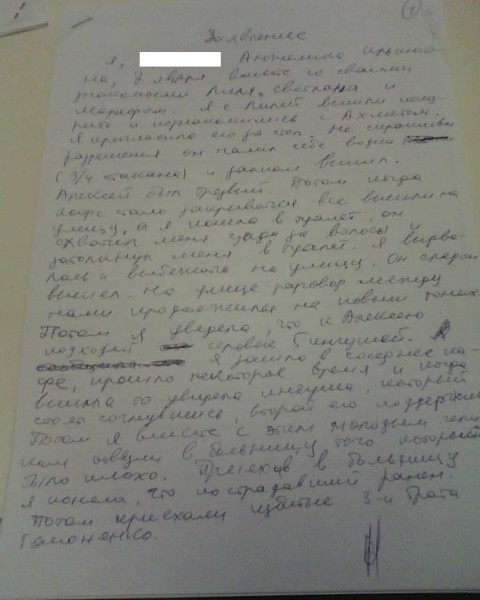 1
Заявление
Я, Анжелика Ильинич-
на, 2 января вместе со своими
знакомыми Лиля, Светлана и
Марифом. Я с Лилей вышли поку-
рить и познакомились с Ахметом.
Я пригласила его за стол. Не спрашивая
разрешения он налил себе водки
(3/4 стакана) и залпом выпил.
Алексей был трезвый. Потом когда
кафе стало закрываться все вышли на
улицу, а я пошла в туалет, он
схватил меня сзади за волосы и
затолкнул меня в туалет. Я вырва-
лась и выбежала на улицу. Он следом
вышел. На улице разговор между
нами продолжился на повыш тонах.
Потом я увидела, что к Алексею
подходил человек (ингуш).
Я зашла в соседнее ка-
фе, прошло некоторое время и когда
вышла то увидела ингуша, который
стоял согнувшись, второй его поддерживал
Потом я вместе с этим молодым чело
ком отвезли в больницу того которому
было плохо. Приехав в больницу
я поняла, что пострадавший ранен.
Потом приехали избитые 3-и брата
Гапоненко.